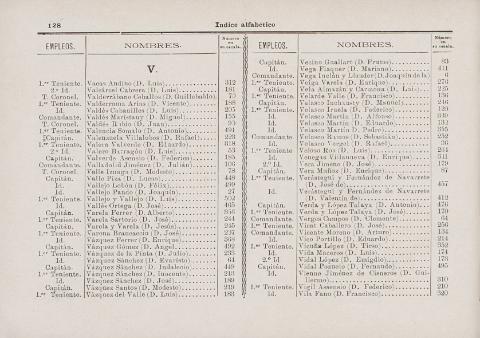 128
Indice alfabético
EMPLEOS.
NOMBRES.
Número en su escala.
V.
1.er Teniente. Vacas Andino (D. Luis) 312
2.º Id. Valcárcel Cabrera (D. Luis) 181
T. Coronel. Valderrábano Ceballos (D. Guillobaldo) 70
1.er Teniente. Valderrama Arias (D. Vicente) 188
Id. Valdés Cabanillas (D. Luis) 205
Comandante. Valdés Maristany (D. Miguel) 155
T. Coronel. Valdés Rubio (D. Juan) 90
1.er Teniente. Valencia Somalo (D. Antonio) 491
Capitán. Valenzuela Villalobos (D. Rafael) 228
1.er Teniente. Valera Valverde (D. Eduardo) 318
2.º Id. Valero Barragán (D. Luis) 53
Capitán. Valverde Asensio (D. Federico) 185
Comandante. Valladolid Jiménez (D. Julián) 106
T. Coronel. Valls Luna (D. Modesto) 78
Capitán. Valls Piza (D. Lucas) 448
Id. Vallejo Lobón (D. Félix) 499
Id. Vallejo Pando (D. Joaquín) 27
1.er Teniente. Vallejo y Vallejo (D. Luis) 502
Id. Vallés Ortega (D. José) 465
Capitán. Varela Ferrer (D. Alberto) 356
1.er Teniente. Varela Sartorio (D. José) 244
Capitán. Varela y Varela (D. Jesús) 245
1.er Teniente. Varona Brancacio (D. José) 237
Id. Vázquez Ferrer (D. Enrique) 368
Capitán. Vázquez Gómez (D. Angel) 492
1.er Teniente. Vázquez de la Pinta (D. Julio) 235
Id. Vázquez Sánchez (D. Evaristo) 64
Capitán. Vázquez Sánchez (D. Indalecio) 449
1.er Teniente. Vázquez Sánchez (D. Inocente) 243
Id. Vázquez Sánchez (D. José) 189
Capitán. Vázquez Santos (D. Modesto) 219
1.er Teniente. Vázquez del Valle (D. Luis) 183
EMPLEOS.
NOMBRES.
Número en su escala.
Capitán. Vecino Gualhart (D. Bruno) 83
Id. Vega Flaquer (D. Mariano) 411
Comandante. Vega Inclán y (D. Joaquín de la) 6
1.er Teniente. Veiga Varela (D. Emilio) 274
Capitán. Vela Almazán y Carmona (D. Luis) 225
1.er Teniente. Velarde Valle (D. Francisco) 156
Capitán. Velasco Inchausty (D. Manuel) 246
1.er Teniente. Velasco Iruela (D. Federico) 138
Id. Velasco Martín (D. Alfonso) 449
Id. Velasco Martín (D. Eduardo) 384
Id. Velasco Martín (D. Pedro) 355
Comandante. Velasco Ramos (D. Sebastián) 252
Id. Velasco Vergel (D. Rafael) 36
1.er Teniente. Veloso Ron (D. Luis) 264
Id. Venegas Villanueva (D. Enrique) 311
2.º Id. Vera Jimeno (D. José) 179
Capitán. Vera Muñoz (D. Enrique) 87
1.er Teniente. Verástegui y Fernández de Navarrete
(D. José de) 457
Id. Verástegui y Fernández de Navarrete
(D. Valentín de) 412
Capitán. Verda y López Talaya (D. Antonio) 476
1.er Teniente. Verda y López Talaya (D. José) 170
Comandante. Vergas Campos (D. Clemente) 64
1.er Teniente. Vicat Caballero (D. José) 256
Comandante. Vicente Moreno (D. Arturo) 134
Id. Vico Portillo (D. Eduardo) 214
1.er Teniente. Vicuña López (D. Tirso) 352
Id. Vida Maceres (D. Luis) 174
2.º Id. Vidal López (D. Emigdio) 178
Capitán. Vidal Poencio (D. Fernando) 495
Id. Vicuso Jiménez de Cisneros (D. Guillermo) 510
1.er Teniente. Vigil Assensio (D. Federico) 210
Id. Vila Fano (D. Francisco) 320